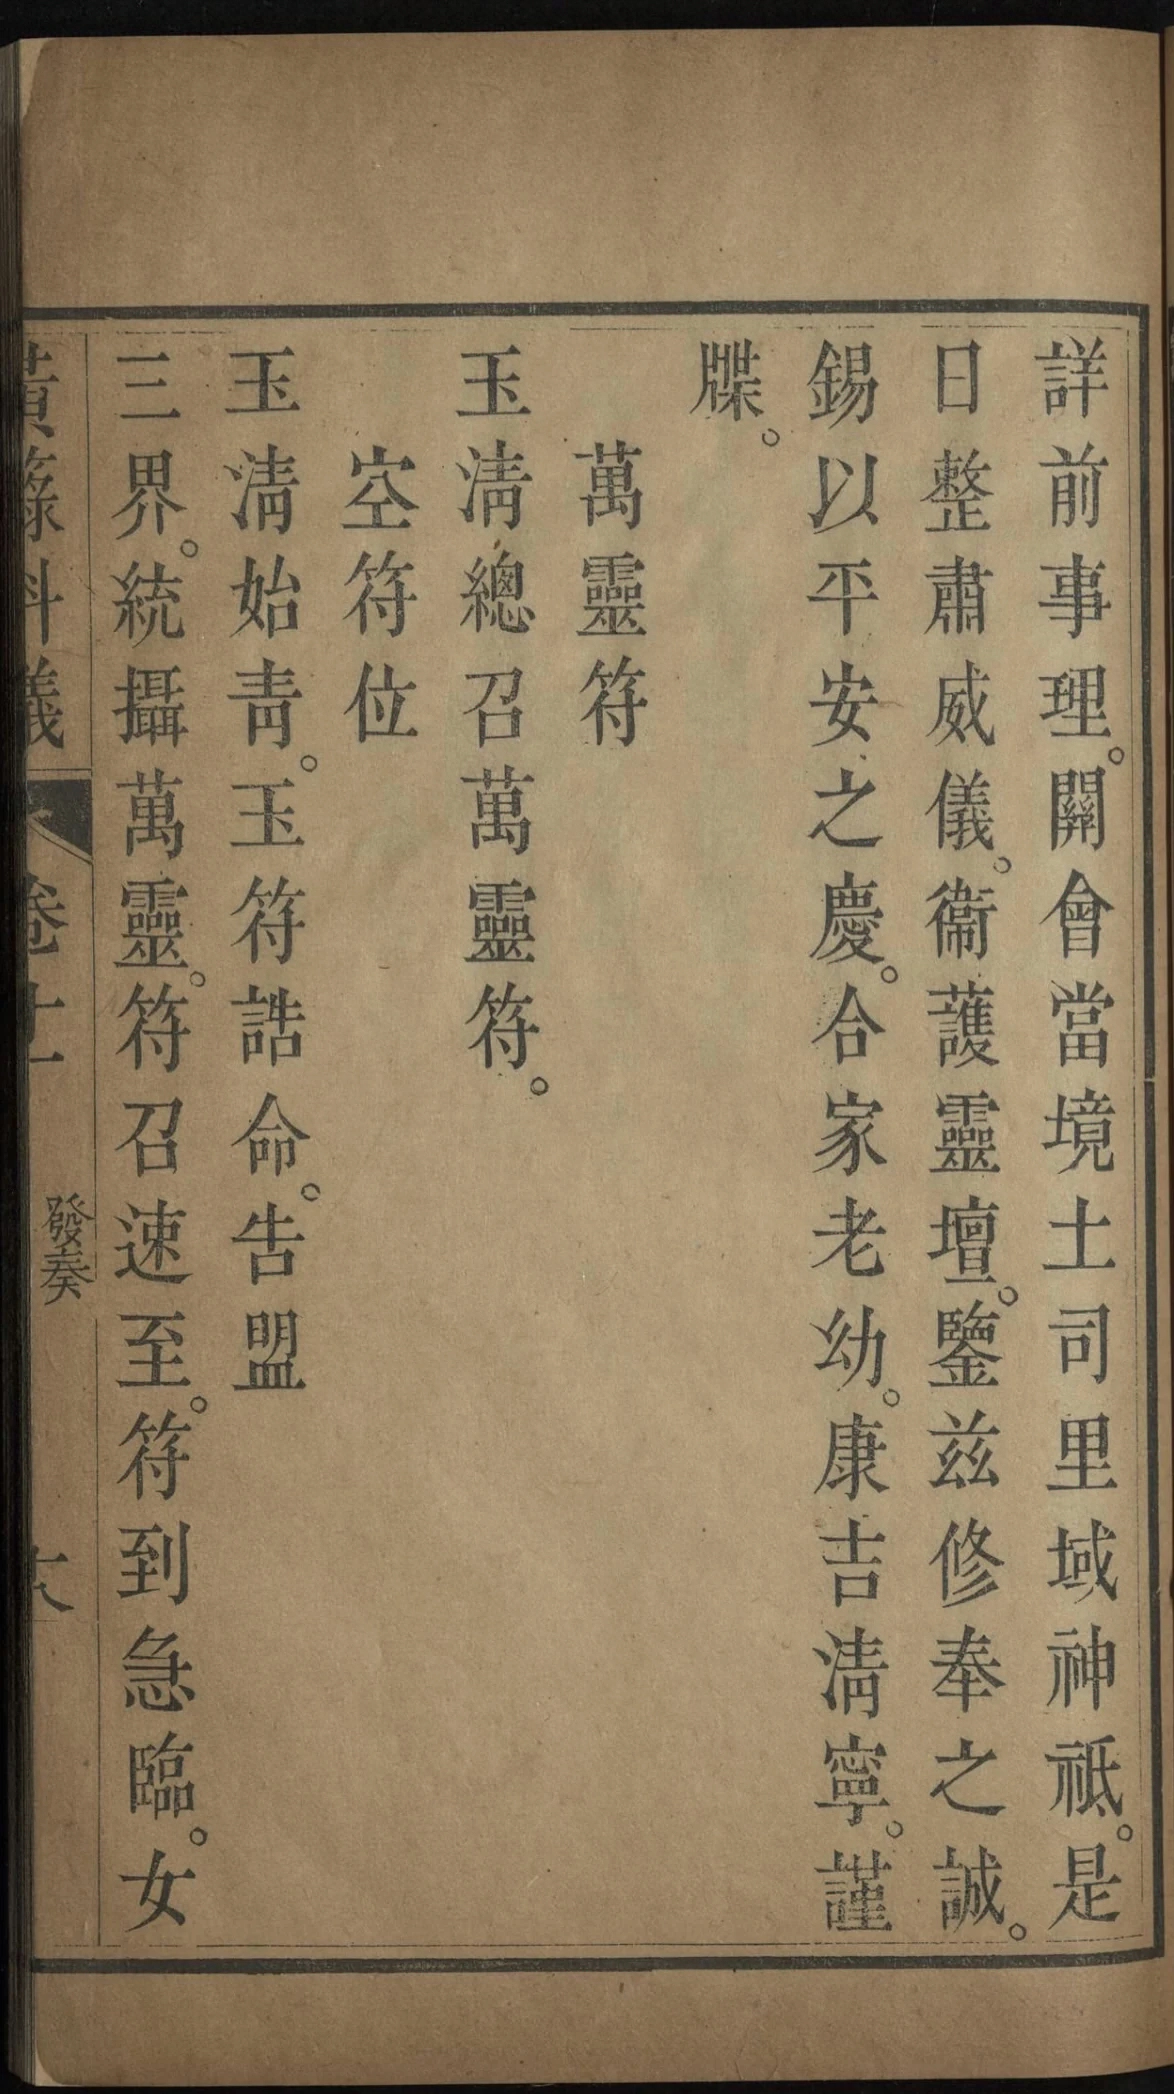 詳前事理。關會當境土司里域神祗。是
日整肅威儀。衞護靈壇。鑒兹修奉之誠。
錫以平安之慶。合家老幼。康吉淸寧。謹
牒。
萬靈符
玉淸總召萬靈符。
空符位
玉淸始靑。玉符誥命。告盟
三界。統攝萬靈。符召速至。符到急臨。女
黃籙科儀
卷十一
發奏